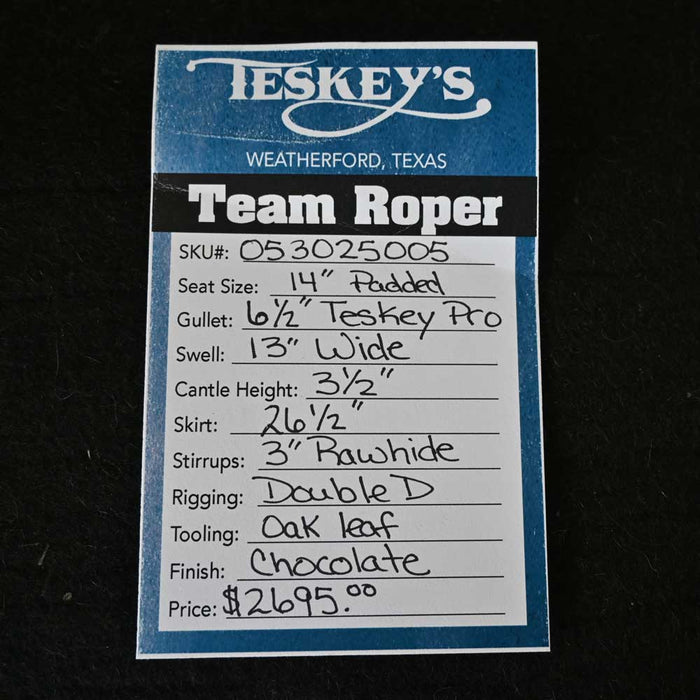 TESKEY'S
WEATHERFORD, TEXAS
Team Roper
SKU#: 053025005
Seat Size: 14" Padded
Gullet: 6½" Teskey Pro
Swell: 13" Wide
Cantle Height: 3½"
Skirt: 26½"
Stirrups: 3" Rawhide
Rigging: Double D
Tooling: Oak leaf
Finish: Chocolate
Price: $2695.00